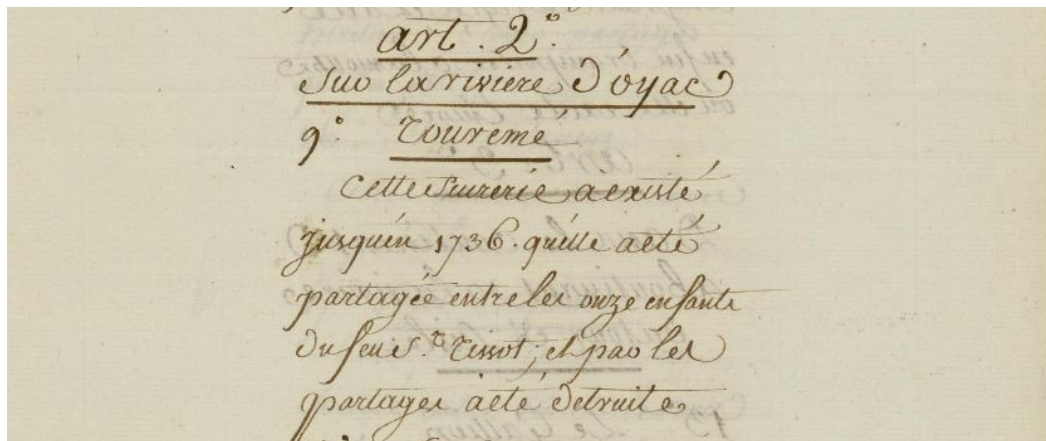 art. 2.º
Sur la riviere d'oyac
9.º Toureme
Cette Sucrerie a existé
jusquén 1736. quélle aeté
partagée entre les onze enfants
du feu S.r Tissot; et par les
partages aeté detruite